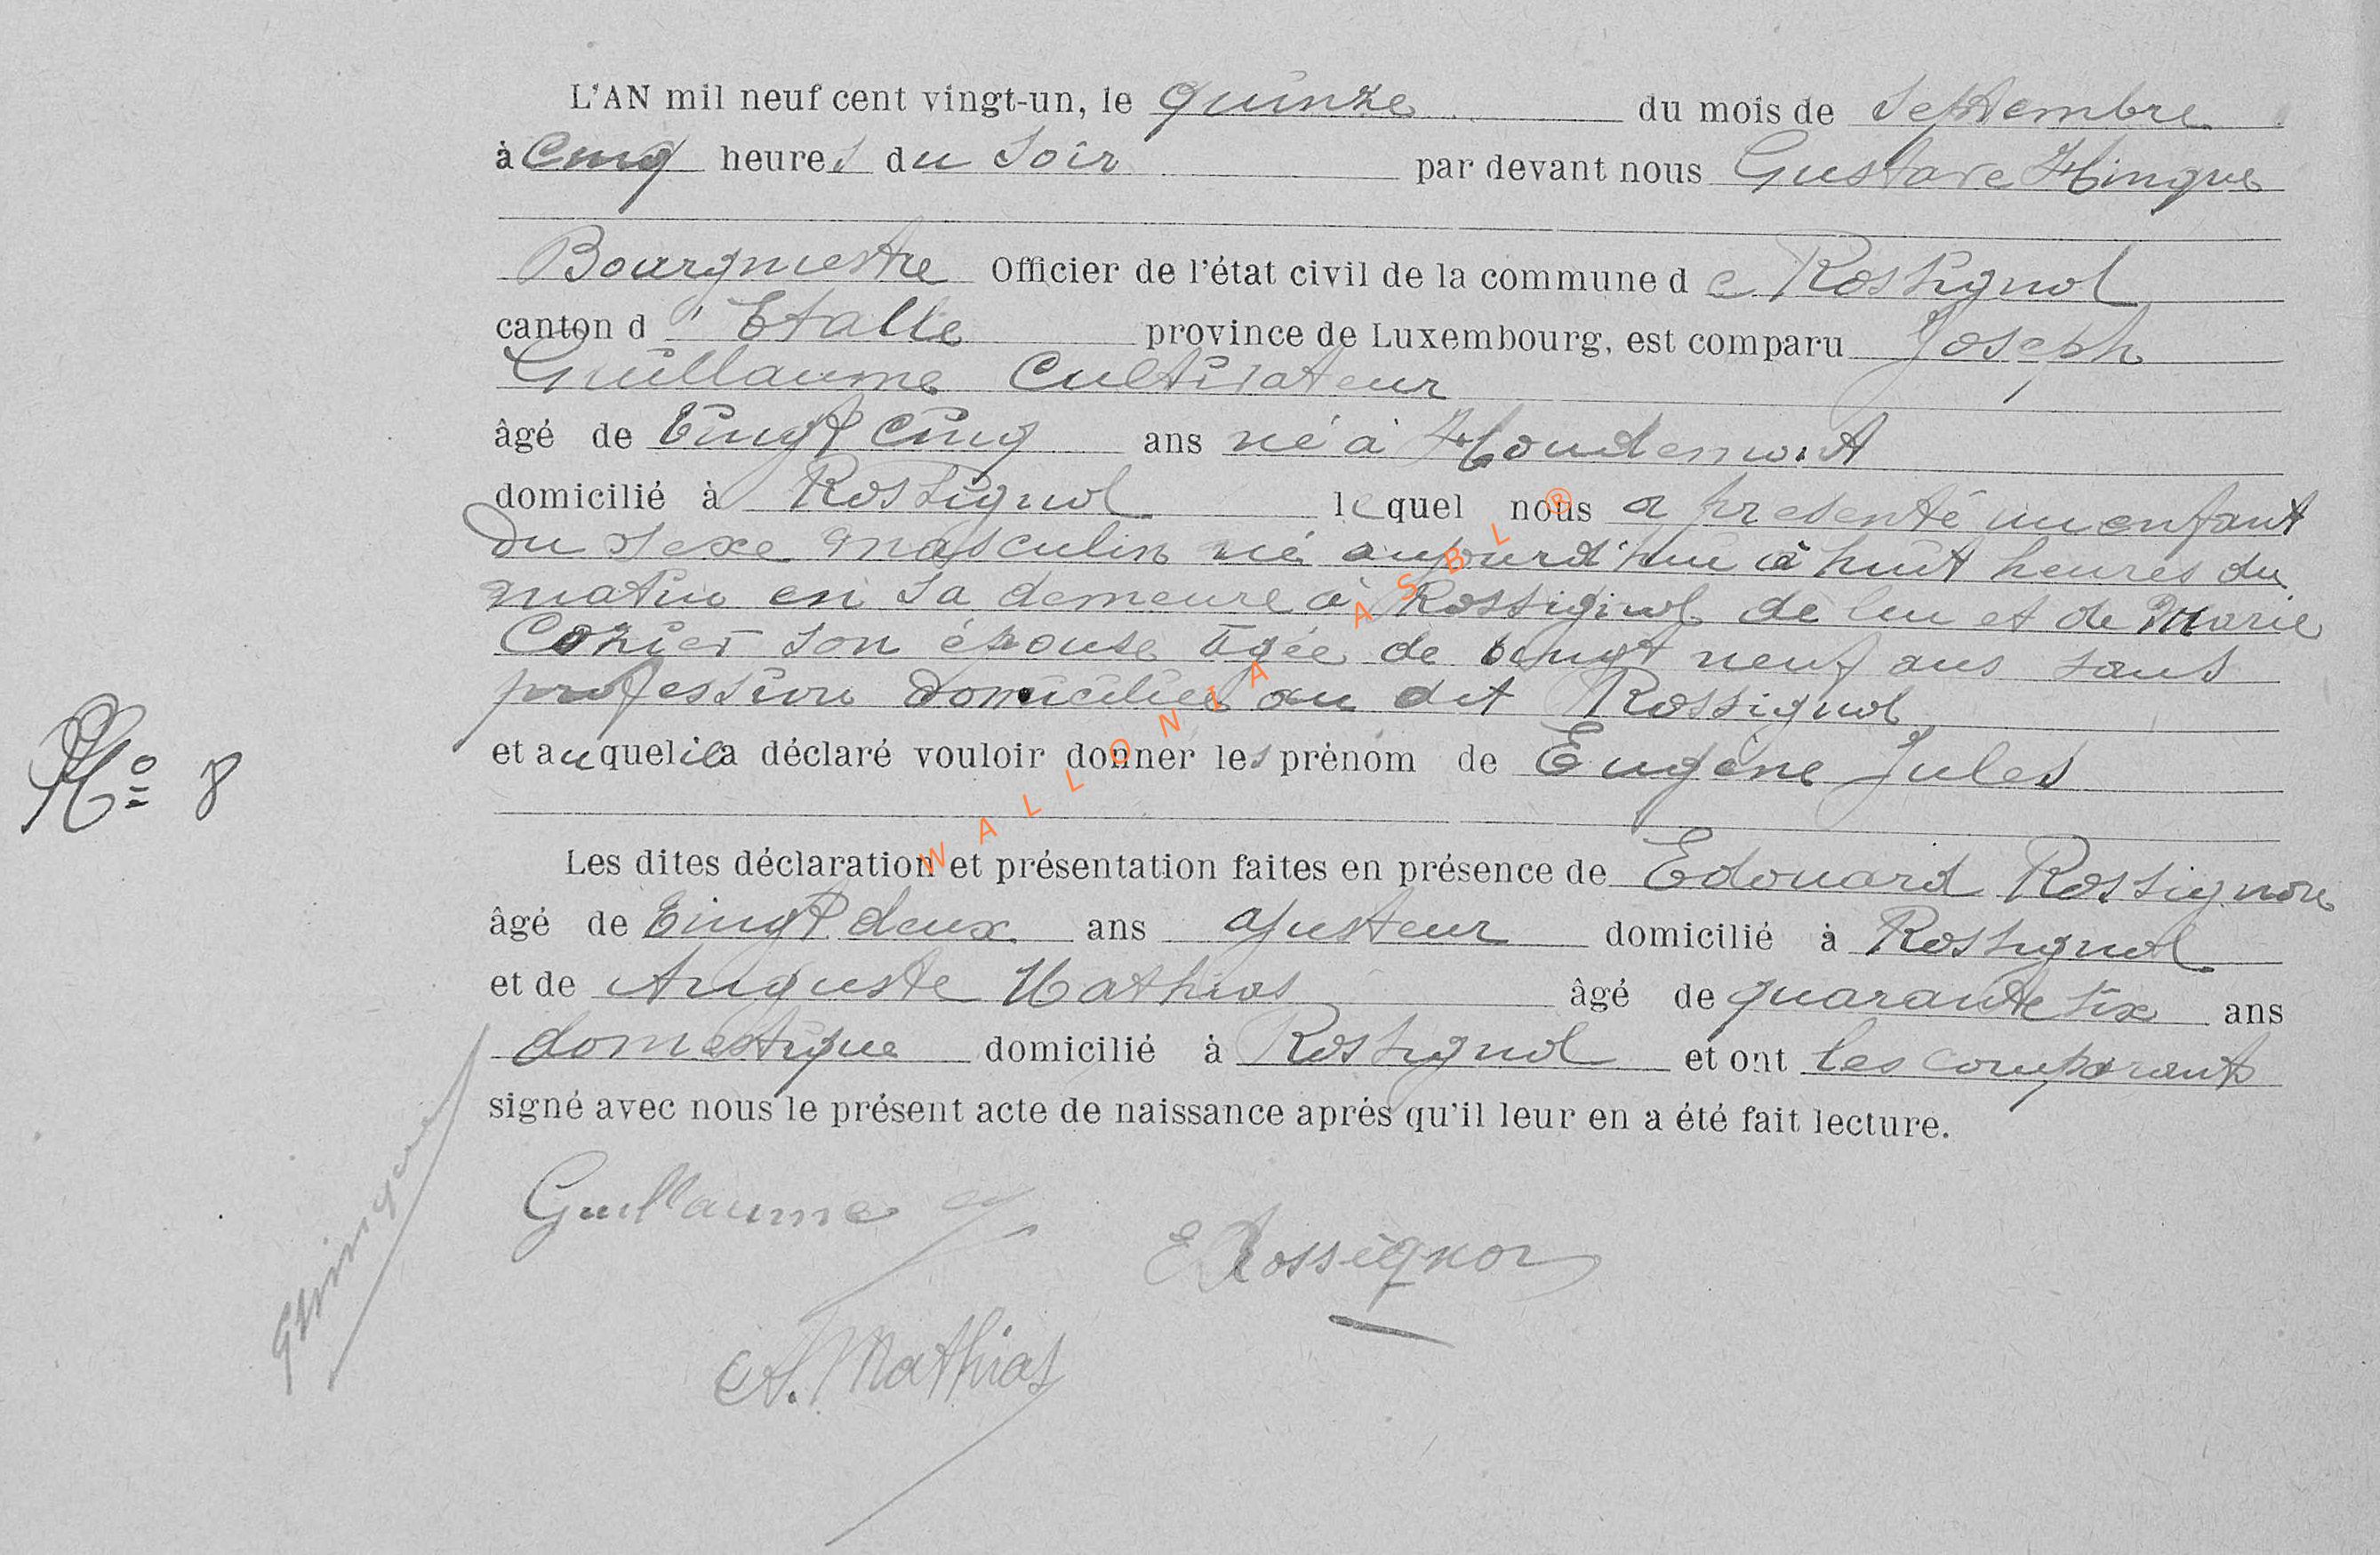 L'AN mil neuf cent vingt-un, le quinze du mois de Septembre
à Cinq heures du Soir par devant nous Gustave Hinque
Bourgmestre Officier de l'état civil de la commune de Rossignol
canton d'Etalle province de Luxembourg, est comparu Joseph
Guillaume Cultivateur
âgé de Vingt Cinq ans né à Houdemont
domicilié à Rossignol lequel nous a présenté un enfant
du sexe masculin né aujourd'hui à huit heures du
matin en sa demeure à Rossignol de lui et de Marie
son épouse âgée de vingt neuf ans sans
profession domiciliée au dit Rossignol
et auquel il a déclaré vouloir donner les prénom de Eugène Jules
N° 8
Les dites déclaration et présentation faites en présence de Edouard Rossignon
âgé de Vingt deux ans ajusteur domicilié à Rossignol
et de Auguste Mathias âgé de quarante six ans
domestique domicilié à Rossignol et ont les comparants
signé avec nous le présent acte de naissance après qu'il leur en a été fait lecture.
Guillaume J
E Rossignon
A. Mathias
WALLONIA ASBL ®